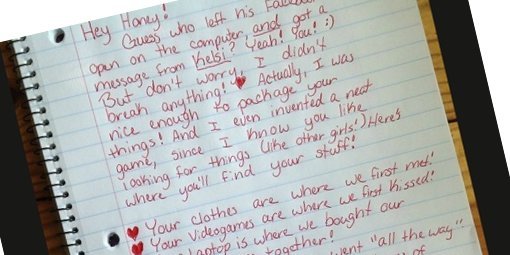 Hey Honey!
Guess who left his
open on the computer, and got a
message from Kelsi? Yeah! You! :)
But don't worry, I didn't
break anything! ♥ Actually, I was
nice enough to package your
things! And I even invented a neat
game, since I know you like
looking for things (like other girls!) Here's
where you'll find your stuff!
♥ Your clothes are where we first met!
♥ Your videogames are where we first kissed!
laptop is where we bought our
together!
went "all the way"!
of